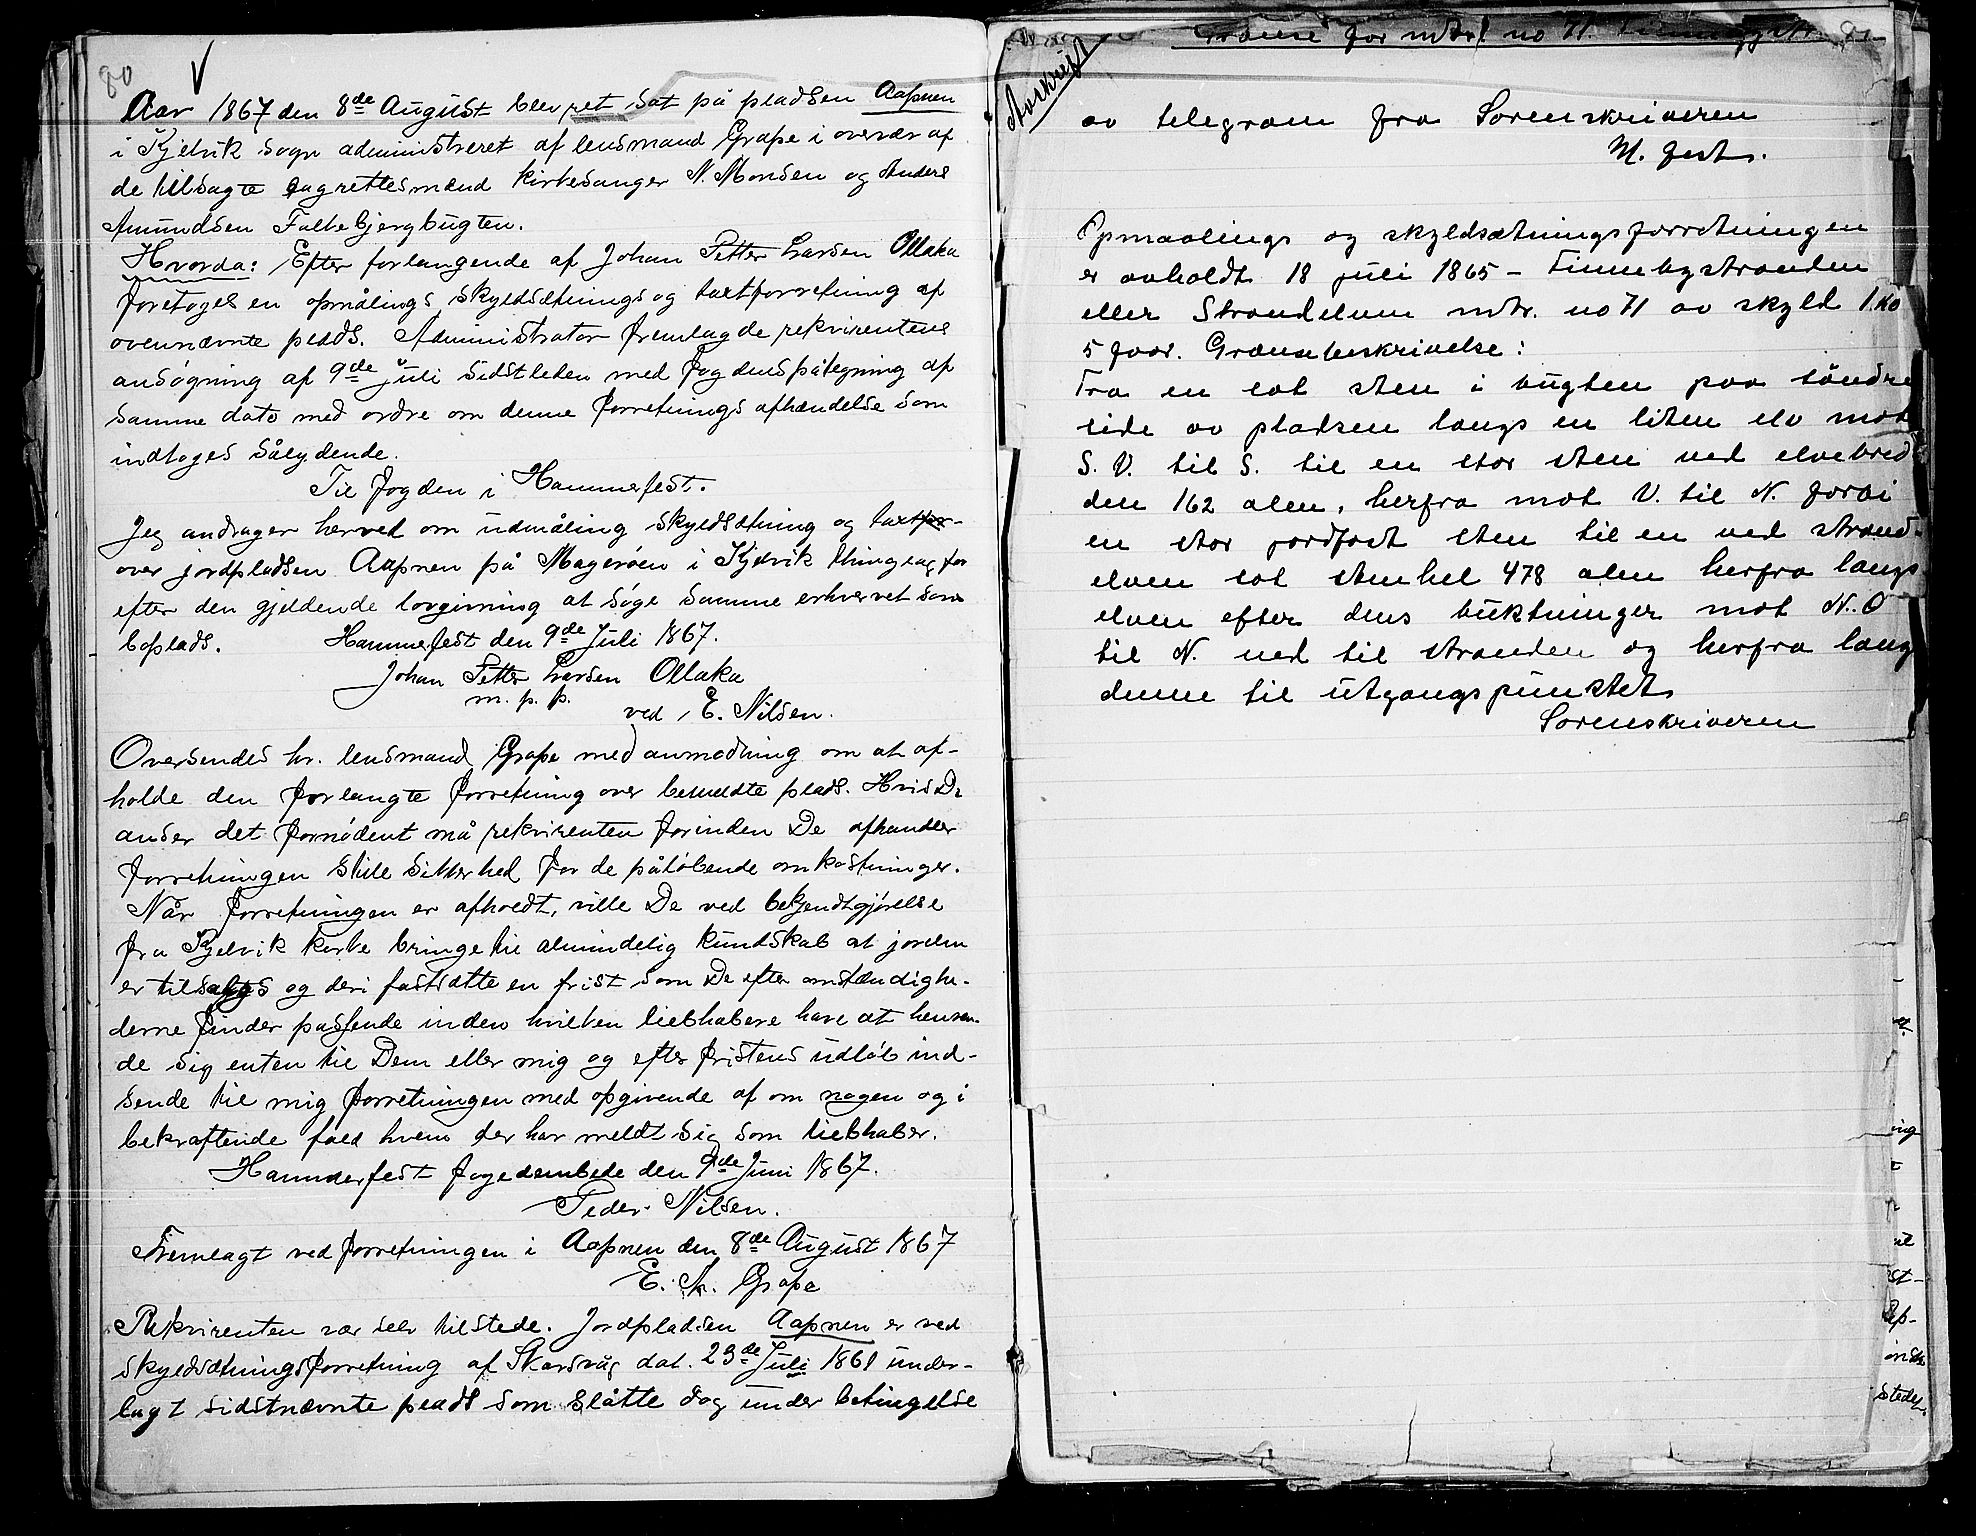 80
Aar 1867 den 8de August blev ret sat på pladsen Aapnen
i Kjelvik sogn administreret af lensmand Grape i overvær af
de tilsagte lagrettesmænd kirkesanger N. Monsen og Anders
Amundsen Falkebjergbugten.
Hvorda: Efter forlangende af Johan Petter Larsen Ollaka
foretoges en opmålings skyldsætnings og taxtforretning af
ovennævnte plads. Administrator fremlagde rekvirentens
ansøgning af 9de juli sidstleden med Fogdens påtegning af
samme dato med ordre om denne forretnings afhændelse som
indtoges sålydende.
Til Fogden i Hammerfest.
Jeg andrager herved om udmåling skyldsætning og taxt
over jordpladsen Aapnen på Magerøen i Kjelvik thinglag for
efter den gjeldende lovgivning at søge samme erhvervet som
boplads. Hammerfest den 9de Juli 1867.
Johan Petter Larsen Ollaka
m. p. p.
ved E. Nilsen.
Oversendes hr. lensmand Grape med anmodning om at af-
holde den forlangte forretning over bemeldte plads. Hvis De
anser det fornødent må rekvirenten forinden De afhandler
forretningen stille sikkerhed for de påløbende omkostninger.
Når forretningen er afholdt, ville De ved bekjendtgjørelse
fra Kjelvik kirke bringe til almindelig kundskab at jorden
er tilsalgs og deri fastsætte en frist som De efter omstændighe-
derne finder passende inden hvilken liebhabere have at henven-
de sig enten til Dem eller mig og efter fristens udløb ind-
sende til mig forretningen med opgivende af om nogen og i
bekræftende fald hvem der har meldt sig som liebhaber.
Hammerfest fogedembede den 9de Juni 1867.
Peder Nilsen.
Fremlagt ved forretningen i Aapnen den 8de August 1867
E. A. Grape
Rekvirenten var selv tilstede. Jordpladsen Aapnen er ved
skyldsætningsforretning af Skarsvåg dat. 23de Juli 1861 under-
lagt sidstnævnte plads som slåtte dog under betingelse
Avskrift
Grænse for mtr. no 71.
av telegram fra Sorenskriveren
H. fest.
Opmaalings og skyldsætningsforretningen
er avholdt 18 juli 1865 - Finnebystranden
eller Strandelven mtr. no 71 av skyld
5 . Grænsebeskrivelse:
Fra en lat sten i bugten paa søndre
side av pladsen langs en liten elv mot
S. V. til S. til en stor sten ved elvebred
den 162 alen, herfra mot V. til N. forbi
en stor jordfast sten til en ved strand-
elven lat stenhel 478 alen herfra langs
elven efter dens buktninger mot N. O
til N. ned til stranden og herfra langs
denne til utgangspunktet
Sorenskriveren
ing
st-
stedet.